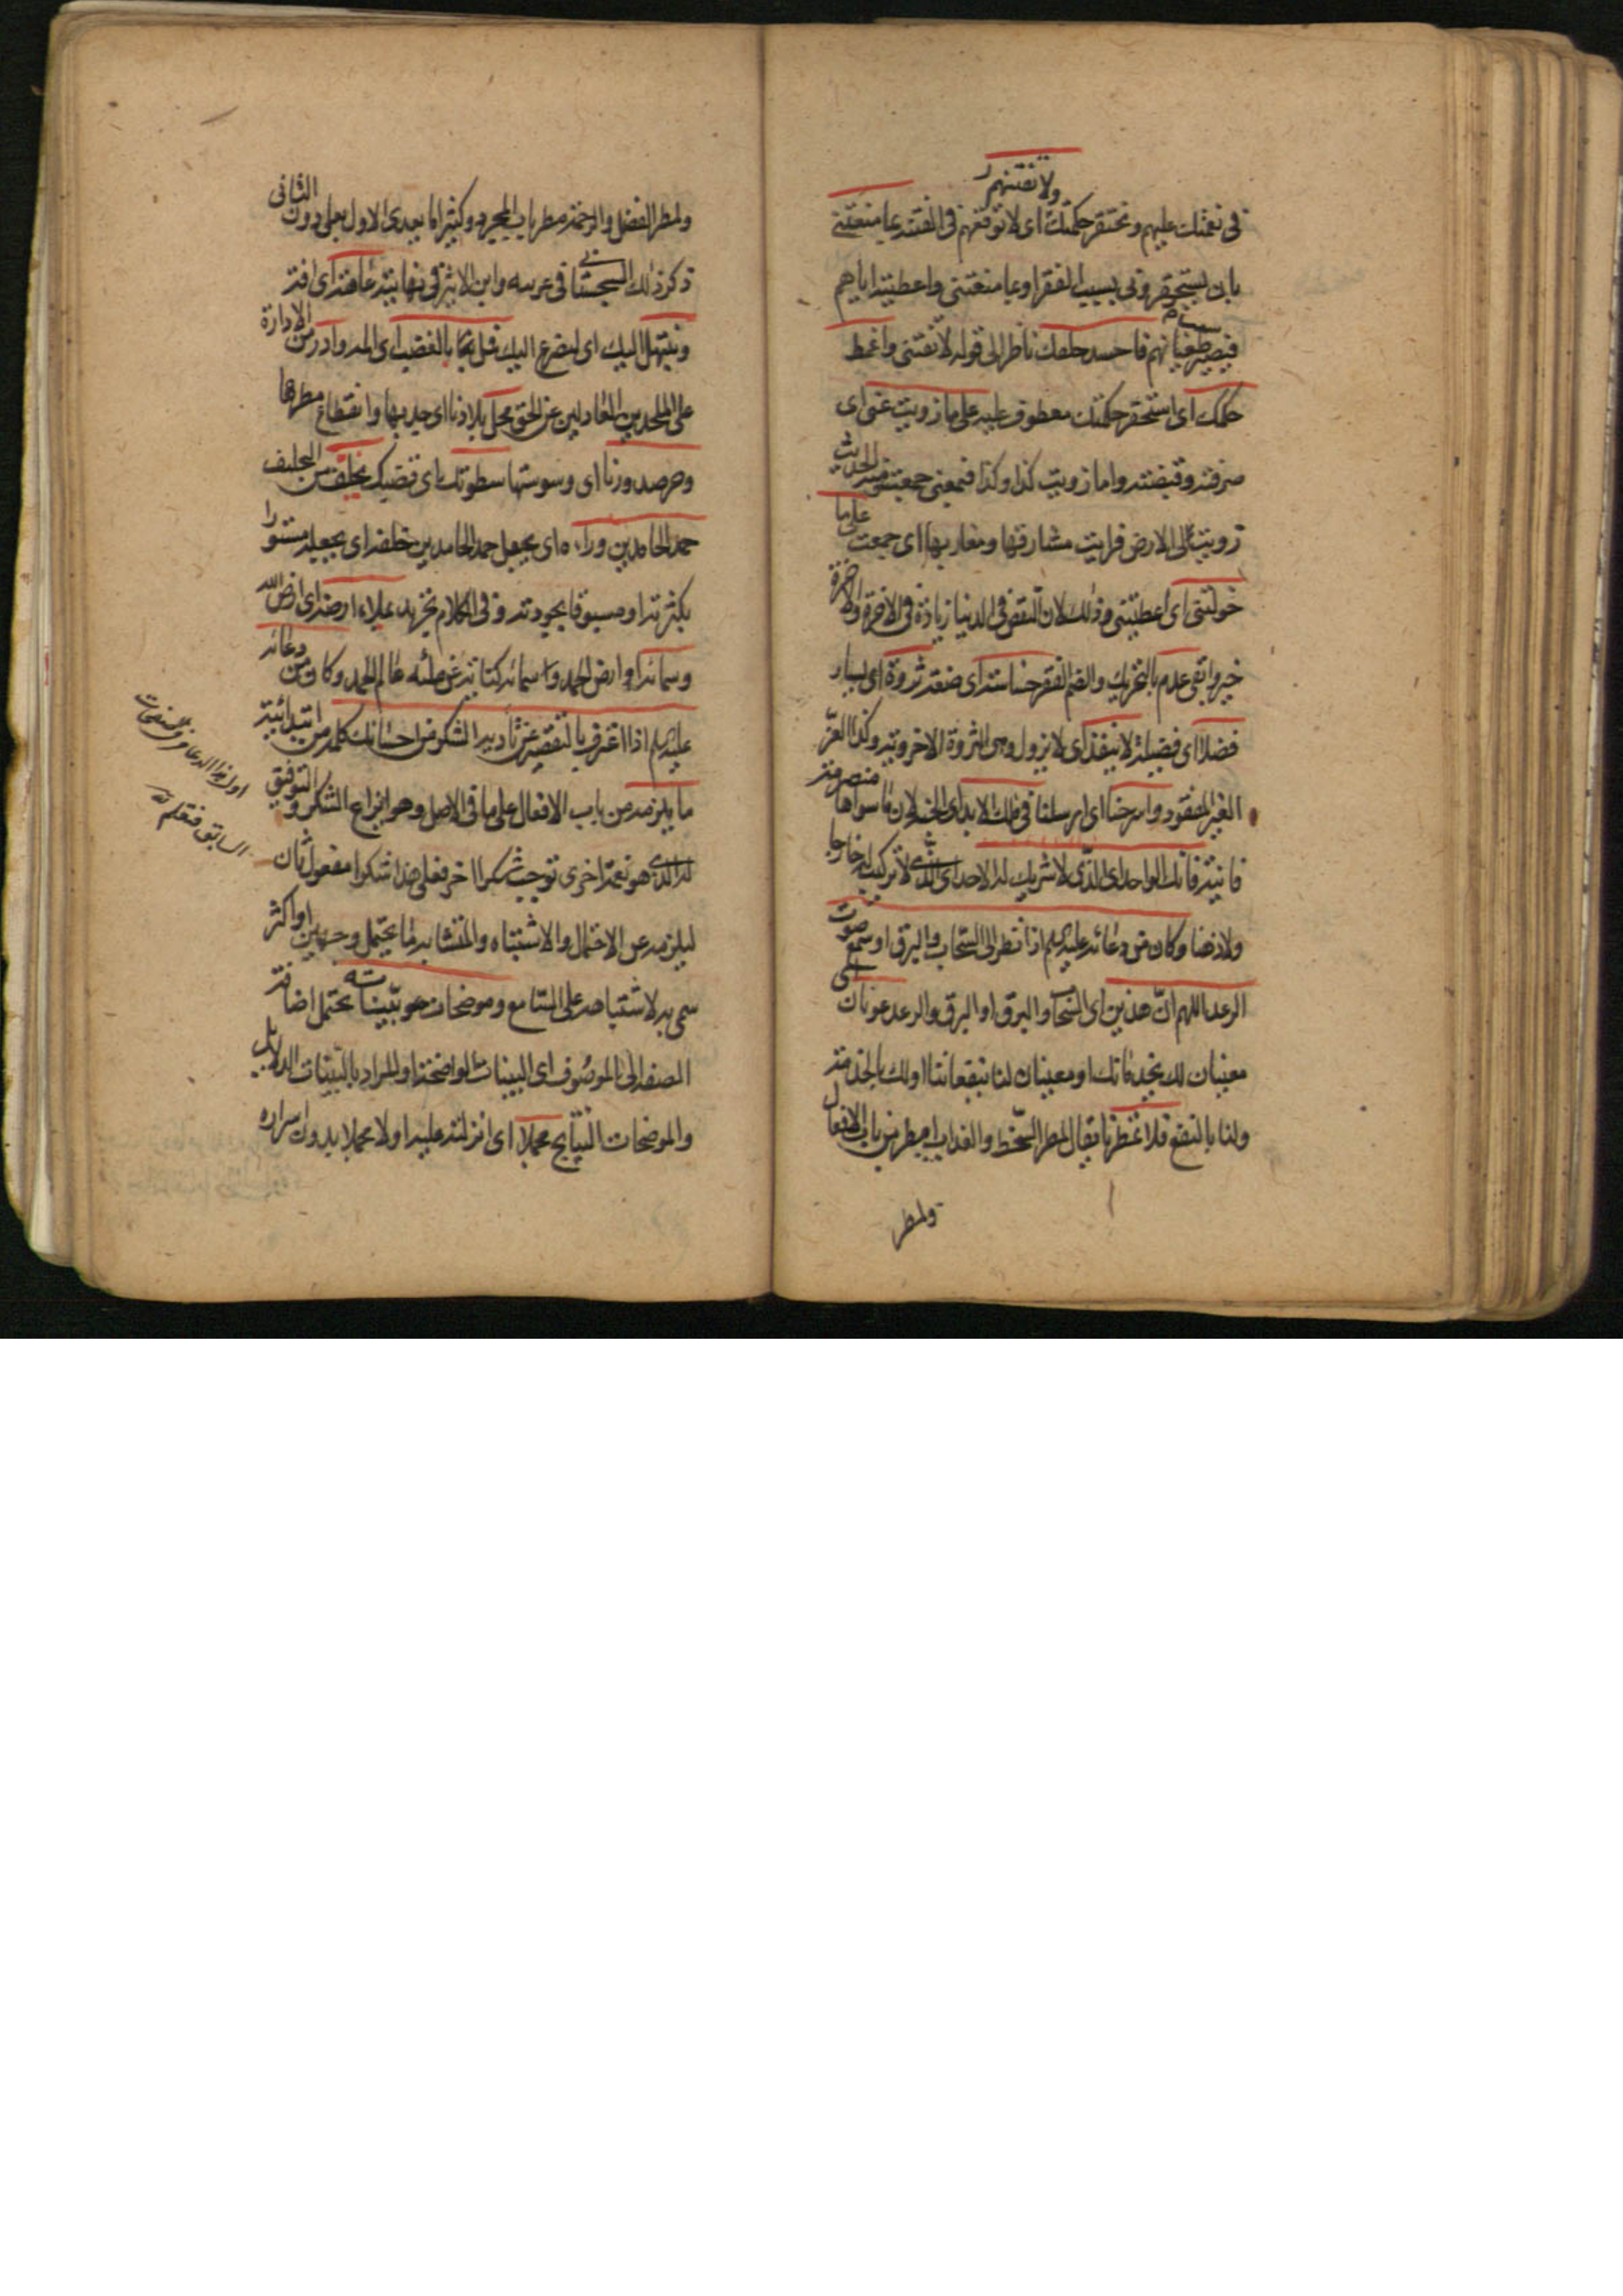 ولا تفتنهم
فى نعمتك عليهم و نحتقر حكمتك اى لا توقعهم فى الفتنة بما منعتنى
بان يستحقرونى بسبب الفقر او بما منعتنى واعطيته اياهم
فيصير طغيانهم فاحسد خلقك ناظر الى قوله لا تفتنى واغمط
حكمك اى استحقر حكمتك معطوف عليه على ما زويت عنى اى
صرفته وقبضته واما زويت كذا وكذا فبمعنى جمعته فى الحديث
زويت لى الارض فرايت مشارقها ومغاربها اى جمعت على ما
خولتنى اى اعطيتنى وذلك لان النقص فى الدنيا زيادة فى الاخرة والاخرة
خير وابقى عدم بالتحريك والضم الفقر خساسة اى ضعة ثروة اى يسار
فضلا اى فضيلة لا ينفد اى لا يزول وهى الثروة الاخروية وكذا العز
الغير المفقود وامرحنا اى ارسلنا فى ملك الابد اى الجنة لان ما سواها منصرمة
فانية فانك الواحد اى الذى لا شريك له الاحد اى الذى لا تركيب له خارجا
ولا ذهنا وكان من دعائه عليه السلم اذا نظر الى السحاب والبرق او سمع صوت
الرعد اللهم ان هذين اى السحاب والبرق او البرق والرعد عونان اى
معينان لك بخدماتك او معينان لنا بنفعاتنا او لك بالخدمة
ولنا بالنفع فلا تمطرنا يقال لمطر السخط والعذاب امطر من باب الافعال
ولمطر
ولمطر الفضل والرحمة مطر باب المجرد وكثيرا ما يعدى الاول بعلى دون الثانى
ذكر ذلك السجستانى فى غريبه وابن الاثير فى نهايته عاهة اى افة
ونبتهل اليك اى نتضرع اليك قبل بما بالغضب اى المه وادر من الادارة
على الملحدين العادلين عن الحق محل بلادنا اى جدبها وانقطاع مطرها
وحر صدورنا اى وسوستها سطوتك اى قضيك يخلف من التخليف
حمد الحامدين وراءه اى يجعل حمد الحامدين خلفه اى يجعله مستورا
بكثرته او مسبوقا بجودته وفى الكلام تجريد ملاء ارضه اى ارض الله
وسمائه او ارض الحمد وسمائه كناية عن ملئه عالم الحمد وكان من دعائه
عليه السلم اذا اعترف بالتقصير عن تادية الشكر من احسانك كلمة من ابتدائية
ما يلزمه من باب الافعال على ما فى الاصل وهو انواع الشكر والتوفيق
له الذى هو نعمة اخرى توجب شكرا اخر فعلى هذا شكرا مفعول ثان
ليلزمه عن الاحتمال والاشتباه والمتشابه ما يحتمل وجهين او اكثر
سمى به لاشتباهه على السامع وموضحات بيناته يحتمل اضافة
الصفة الى الموصوف اى البينات الواضحة او المراد بالبينات الدلايل
والموضحات النتايج مجملا اى انزلته عليه اولا مجملا بدون اسراره
السابق فتقلم